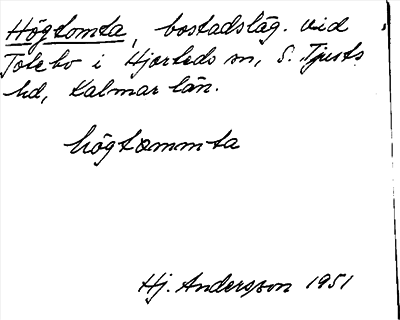 Högtomta, bostadsläg. vid
Totebo i Hjorteds sn, S. Tjusts
hd, Kalmar län.
högtommta
Hj. Andersson 1951